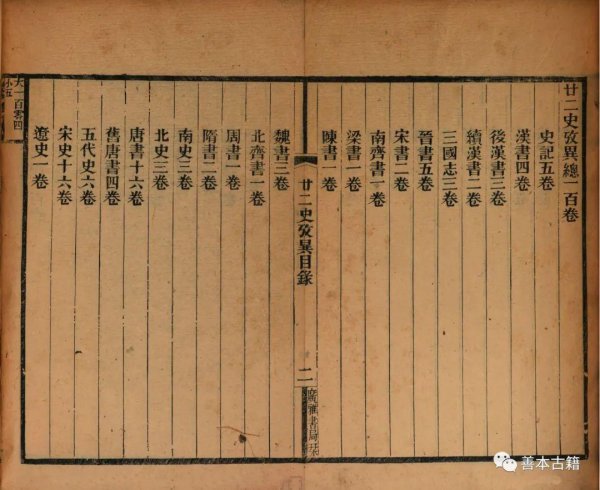 廿二史攷異總一百卷
史記五卷
漢書四卷
後漢書三卷
續漢書二卷
三國志三卷
晉書五卷
宋書二卷
南齊書一卷
梁書一卷
陳書一卷
廿二史攷異目錄
二
廣雅書局栞
魏書三卷
北齊書一卷
周書一卷
隋書二卷
南史三卷
北史三卷
唐書十六卷
舊唐書四卷
五代史六卷
宋史十六卷
遼史一卷
大一百零四
小五
善本古籍